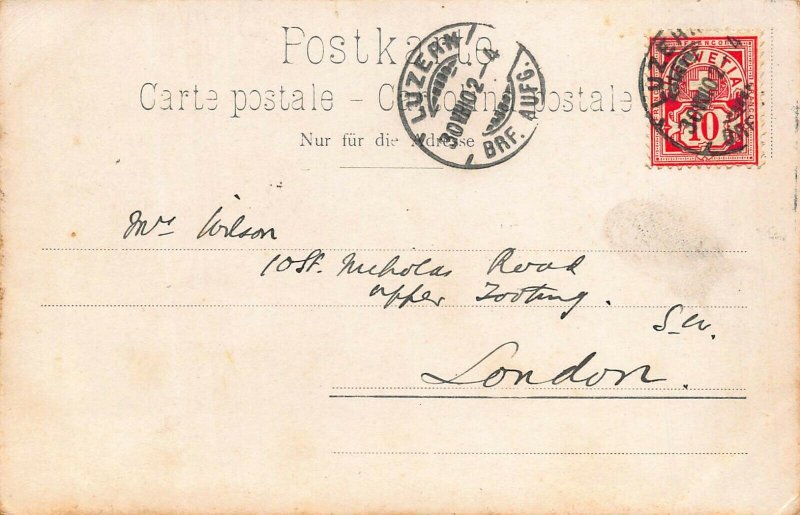 Postkarte
Carte postale – Cartolina postale
Nur für die Adresse
LUZERN
2–4
BRF. AUFG.
LUZERN
HELVETIA
10
Mrs Wilson
10 St. Nicholas Road
Upper Tooting.
S.W.
London.